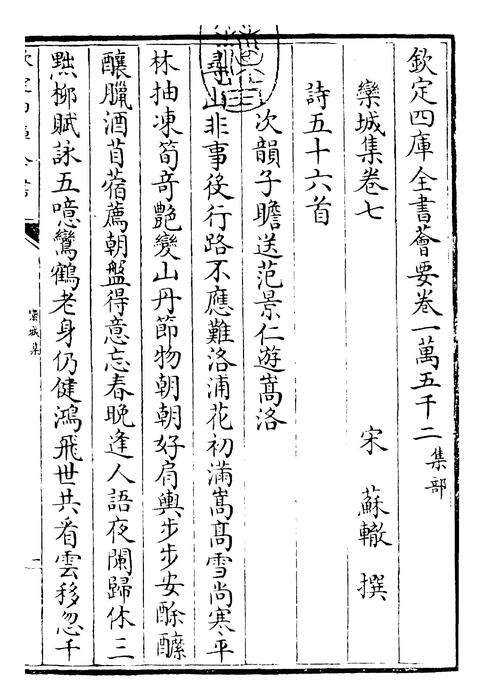 欽定四庫全書薈要卷一萬五千二 集部
欒城集卷七
宋 蘇轍 撰
詩五十六首
次韻子瞻送范景仁遊嵩洛
尋山非事役行路不應難洛浦花初滿嵩髙雪尚寒平
林抽凍筍竒艷變山丹節物朝朝好肩輿步步安酴醿
釀臘酒苜蓿薦朝盤得意忘春晚逢人語夜闌歸休三
黜柳賦詠五噫鸞鶴老身仍健鴻飛世共看雲移忽千
欒城集
一